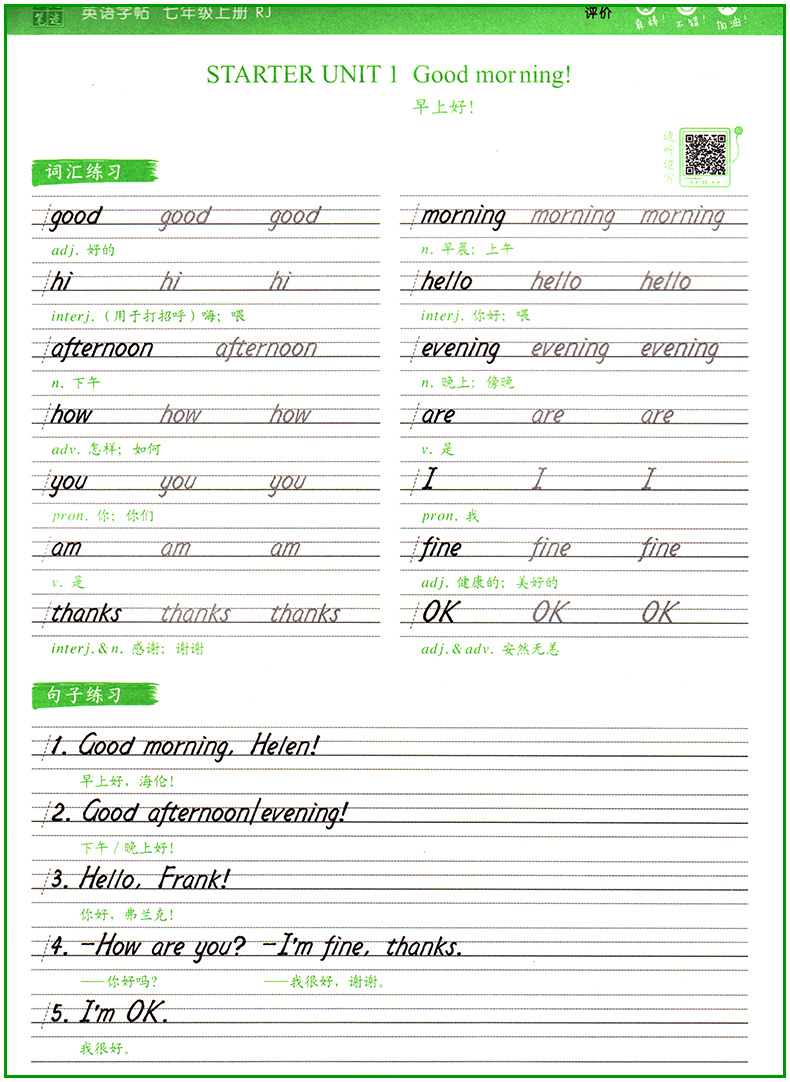 笔迹 英语字帖 七年级上册 RJ 评价 真棒! 不错! 加油!
STARTER UNIT 1 Good morning!
早上好!
边听边写
词汇练习
good good good
adj. 好的
hi hi hi
interj.（用于打招呼）嗨；喂
afternoon afternoon
n. 下午
how how how
adv. 怎样；如何
you you you
pron. 你；你们
am am am
v. 是
thanks thanks thanks
interj.&n. 感谢；谢谢
morning morning morning
n. 早晨；上午
hello hello hello
interj. 你好；喂
evening evening evening
n. 晚上；傍晚
are are are
v. 是
I I I
pron. 我
fine fine fine
adj. 健康的；美好的
OK OK OK
adj.&adv. 安然无恙
句子练习
1. Good morning, Helen!
早上好，海伦!
2. Good afternoon/evening!
下午/晚上好!
3. Hello, Frank!
你好，弗兰克!
4. —How are you? —I'm fine, thanks.
——你好吗? ——我很好，谢谢。
5. I'm OK.
我很好。